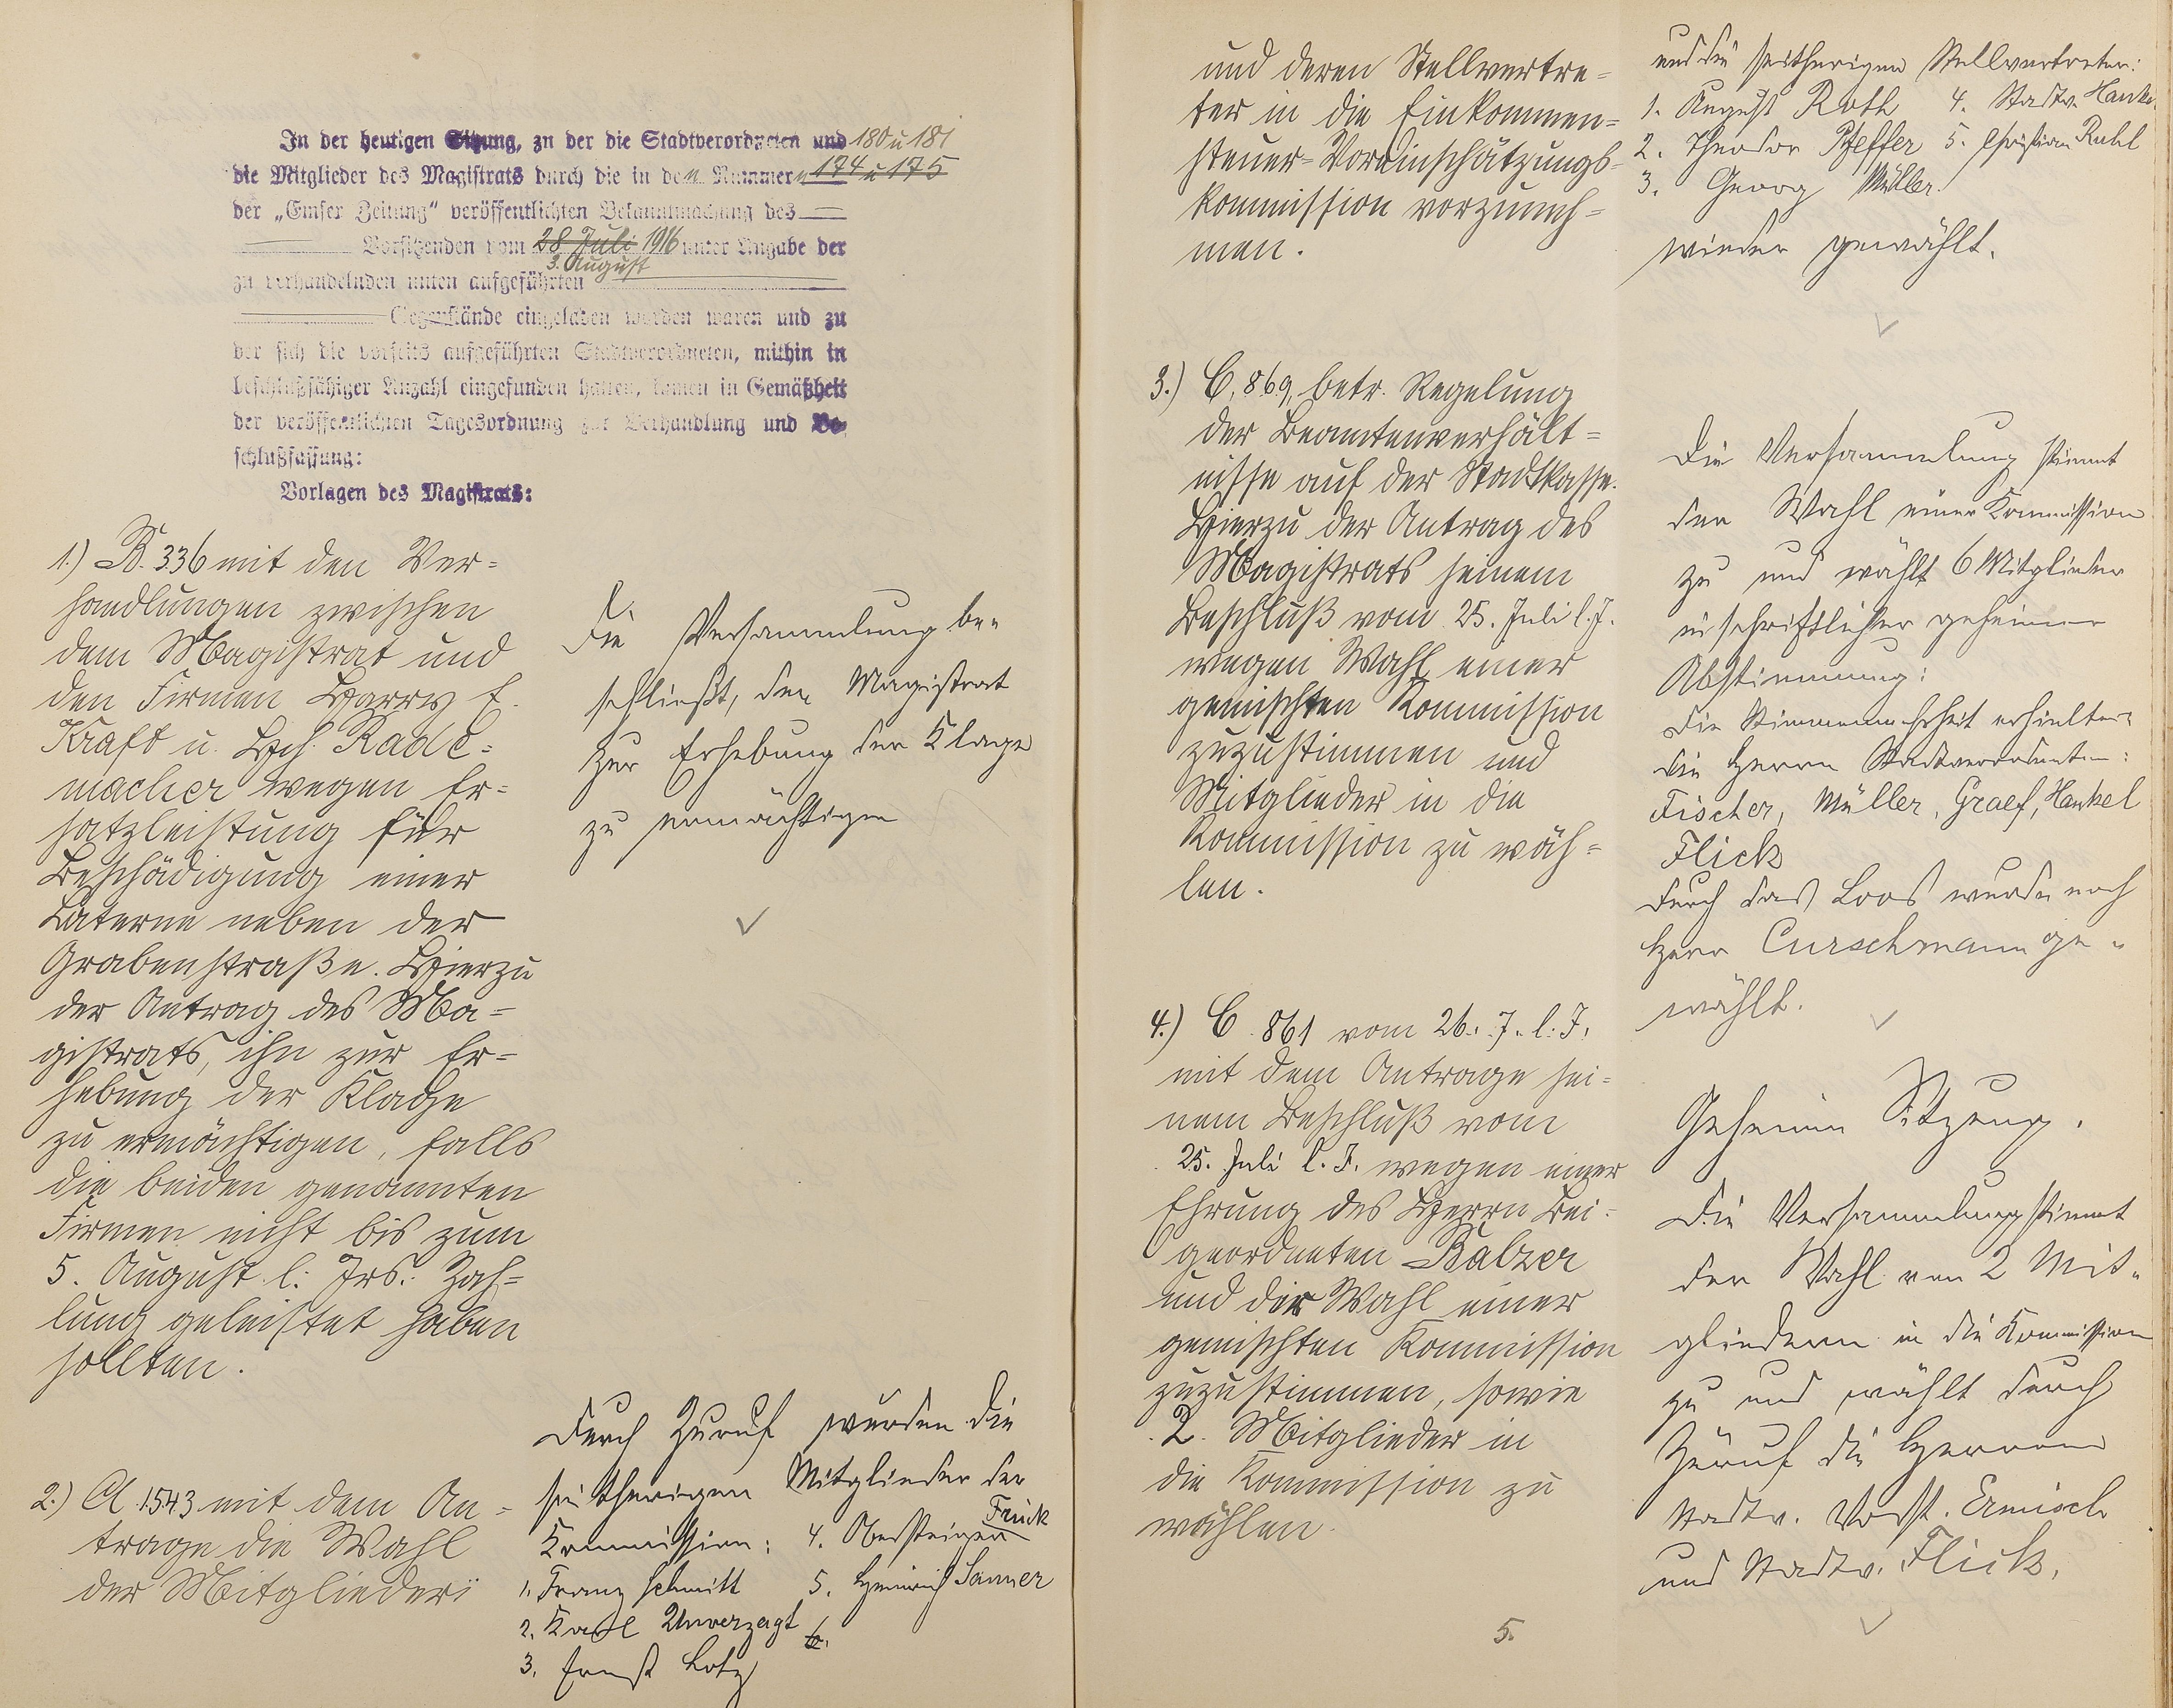 In der heutigen Sitzung, zu der die Stadtverordneten und 180 u 181
die Mitglieder des Magistrats durch die in den Nummern 174 u 175
der „Emser Zeitung“ veröffentlichten Bekanntmachung des
Vorsitzenden vom 28 Juli 1916 unter Angabe der
3. August
zu verhandelnden unten aufgeführten
Gegenstände eingeladen worden waren und zu
der sich die vorseits aufgeführten Stadtverordneten, mithin in
beschlußfähiger Anzahl eingefunden hatten, kamen in Gemäßheit
der veröffentlichten Tagesordnung zur Verhandlung und Be-
schlußfassung:
Vorlagen des Magistrats:
1.) B. 336 mit den Ver=
handlungen zwischen
dem Magistrat und
den Firmen Harry E.
Kraft u. Hch. Rade=
macher wegen Er=
satzleistung für
Beschädigung einer
Laterne neben der
Grabenstraße. Hierzu
der Antrag des Ma=
gistrats, ihn zur Er=
hebung der Klage
zu ermächtigen, falls
die beiden genannten
Firmen nicht bis zum
5. August l. Jrs. Zah=
lung geleistet haben
sollten.
Die Versammlung be=
schließt, den Magistrat
zur Erhebung der Klage
zu ermächtigen
2.) A 1543 mit dem An=
trage die Wahl
der Mitglieder
Durch Zuruf wurden die
seitherigen Mitglieder der
Kommission: 4. Obersteiger Frick
1. Franz Schmitt 5. Heinrich Sanner
2. Karl Unverzagt 6.
3. Ernst Lotz
und deren Stellvertre=
ter in die Einkommen=
steuer=Voreinschätzungs=
kommission vorzuneh=
men.
und die seitherigen Stellvertreter:
1. August Roth 4. Stadtv. Hankel
2. Theodor Pfeffer 5. Christian Ruhl
3. Georg Müller
wieder gewählt.
3.) C. 869, betr. Regelung
der Beamtenverhält=
nisse auf der Stadtkasse.
Hierzu der Antrag des
Magistrats seinem
Beschluß vom 25. Juli l. J.
wegen Wahl einer
gemischten Kommission
zuzustimmen und
Mitglieder in die
Kommission zu wäh=
len.
Die Versammlung stimmt
der Wahl einer Kommission
zu und wählt 6 Mitglieder
in schriftlicher geheimer
Abstimmung:
Die Stimmenmehrheit erhielten
die Herrn Stadtverordneten:
Fischer, Müller, Graef, Hankel
Flick
Durch das Loos wurde noch
Herr Curschmann ge=
wählt.
4.) C. 861 vom 26. 7. l. J.
mit dem Antrage sei=
nem Beschluß vom
25. Juli l. J. wegen einer
Ehrung des Herrn Bei=
geordneten Balzer
und der Wahl einer
gemischten Kommission
zuzustimmen, sowie
2. Mitglieder in
die Kommission zu
wählen.
Geheime Sitzung.
Die Versammlung stimmt
der Wahl von 2 Mit=
gliedern in die Kommission
zu und wählt durch
Zuruf die Herren
Stadtv. Vorst. Ermisch
und Stadtv. Flick.
5.